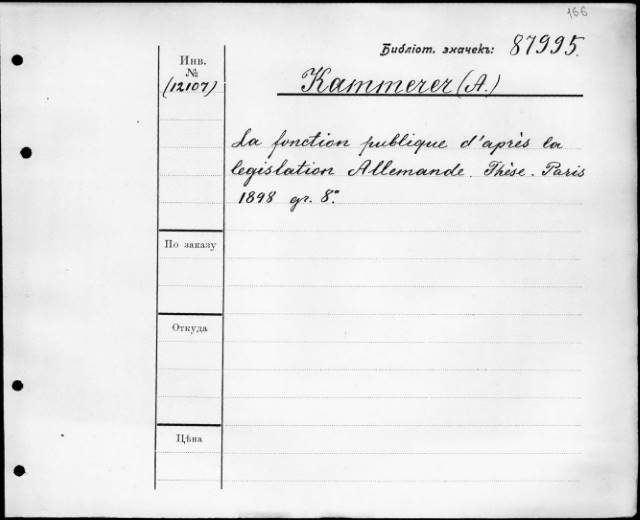 166
Библіот. значекъ: 87995.
Инв.
№
(12107)
Kammerer (A.)
La fonction publique d'après la
législation Allemande. Thèse. Paris
1898 gr. 8°.
По заказу
Откуда
Цѣна